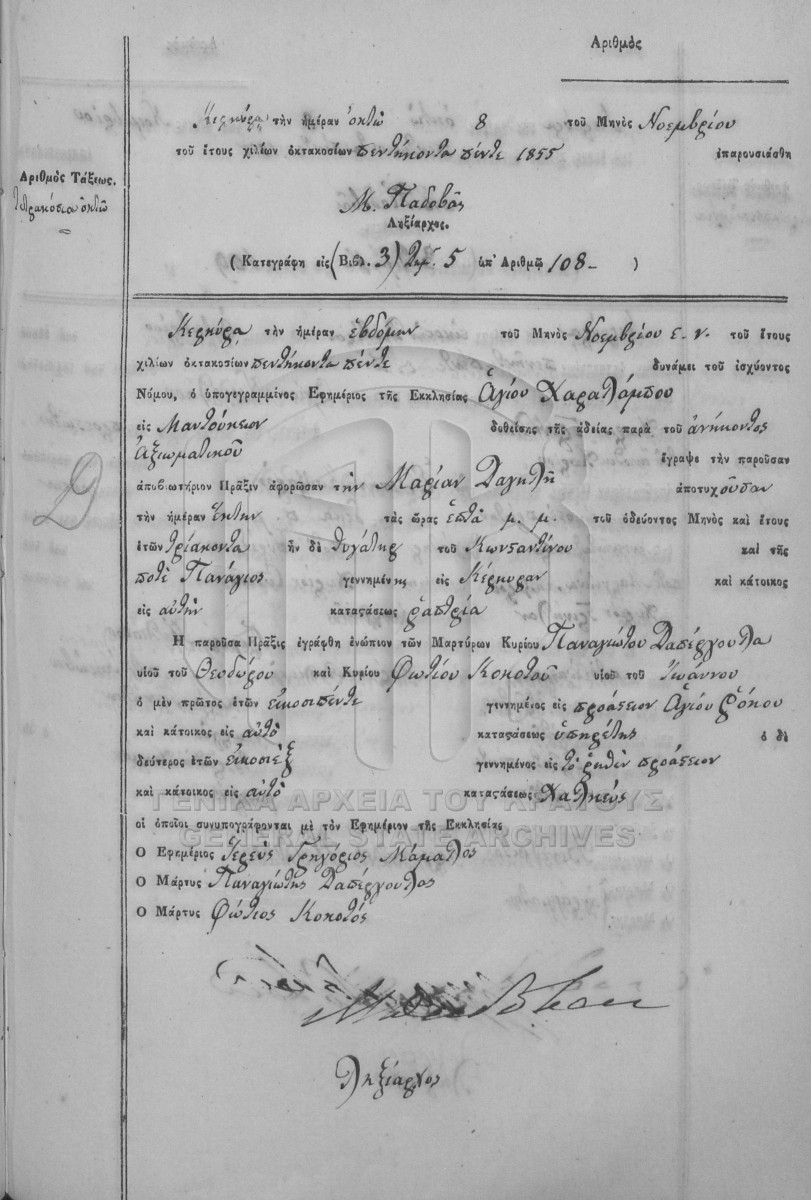 Ἀριθμὸς
Κερκύρᾳ τὴν ἡμέραν ὀκτὼ 8 τοῦ Μηνὸς Νοεμβρίου
τοῦ ἔτους χιλίων ὀκτακοσίων πεντήκοντα πέντε 1855 ἐπαρουσιάσθη
Ἀριθμὸς Τάξεως.
τετρακόσια ὀκτὼ
Μ. Παδοβᾶς
Ληξίαρχος.
(Κατεγράφη εἰς (Βιβλ. 3) 5 ὑπ' Ἀριθμῷ 108 - )
Κερκύρᾳ τὴν ἡμέραν ἑβδόμην τοῦ Μηνὸς Νοεμβρίου ε. ν. τοῦ ἔτους
χιλίων ὀκτακοσίων πεντήκοντα πέντε δυνάμει τοῦ ἰσχύοντος
Νόμου, ὁ ὑπογεγραμμένος Ἐφημέριος τῆς Ἐκκλησίας Ἁγίου Χαραλάμπου
εἰς Μαντούκιον δοθείσης τῆς ἀδείας παρὰ τοῦ ἀνήκοντος
Ἀξιωματικοῦ ἔγραψε τὴν παροῦσαν
ἀποβιωτήριον Πρᾶξιν ἀφορῶσαν τὴν Μαρίαν ἀποτυχοῦσαν
τὴν ἡμέραν ἕκτην τὰς ὥρας ἑπτὰ μ. μ. τοῦ ὁδεύοντος Μηνὸς καὶ ἔτους
ἐτῶν τριάκοντα ἦν δὲ θυγάτηρ τοῦ Κωνσταντίνου καὶ τῆς
ποτὲ Πανάγιος γεννημένης εἰς Κέρκυραν καὶ κάτοικος
εἰς αὐτὴν καταστάσεως ῥαπτρία
Ἡ παροῦσα Πρᾶξις ἐγράφθη ἐνώπιον τῶν Μαρτύρων Κυρίου Παναγιώτου Δαπέργουλα
υἱοῦ τοῦ Θεοδώρου καὶ Κυρίου Φωτίου Κοκοτοῦ υἱοῦ τοῦ Ἰωάννου
ὁ μὲν πρῶτος ἐτῶν εἰκοσιπέντε γεννημένος εἰς προάστειον Ἁγίου Ῥόκου
καὶ κάτοικος εἰς αὐτὸ καταστάσεως ὑπηρέτης ὁ δὲ
δεύτερος ἐτῶν εἰκοσιὲξ γεννημένος εἰς τὸ ῥηθὲν προάστειον
καὶ κάτοικος εἰς αὐτὸ καταστάσεως Χαλκεὺς
ΓΕΝΙΚΑ ΑΡΧΕΙΑ ΤΟΥ ΚΡΑΤΟΥΣ
οἱ ὁποῖοι συνυπογράφονται μὲ τὸν Ἐφημέριον τῆς Ἐκκλησίας
GENERAL STATE ARCHIVES
Ὁ Ἐφημέριος Ἱερεὺς Γρηγόριος Μάμαλος
Ὁ Μάρτυς Παναγιώτης Δαπέργουλος
Ὁ Μάρτυς Φώτιος Κοκοτός
Ληξίαρχος